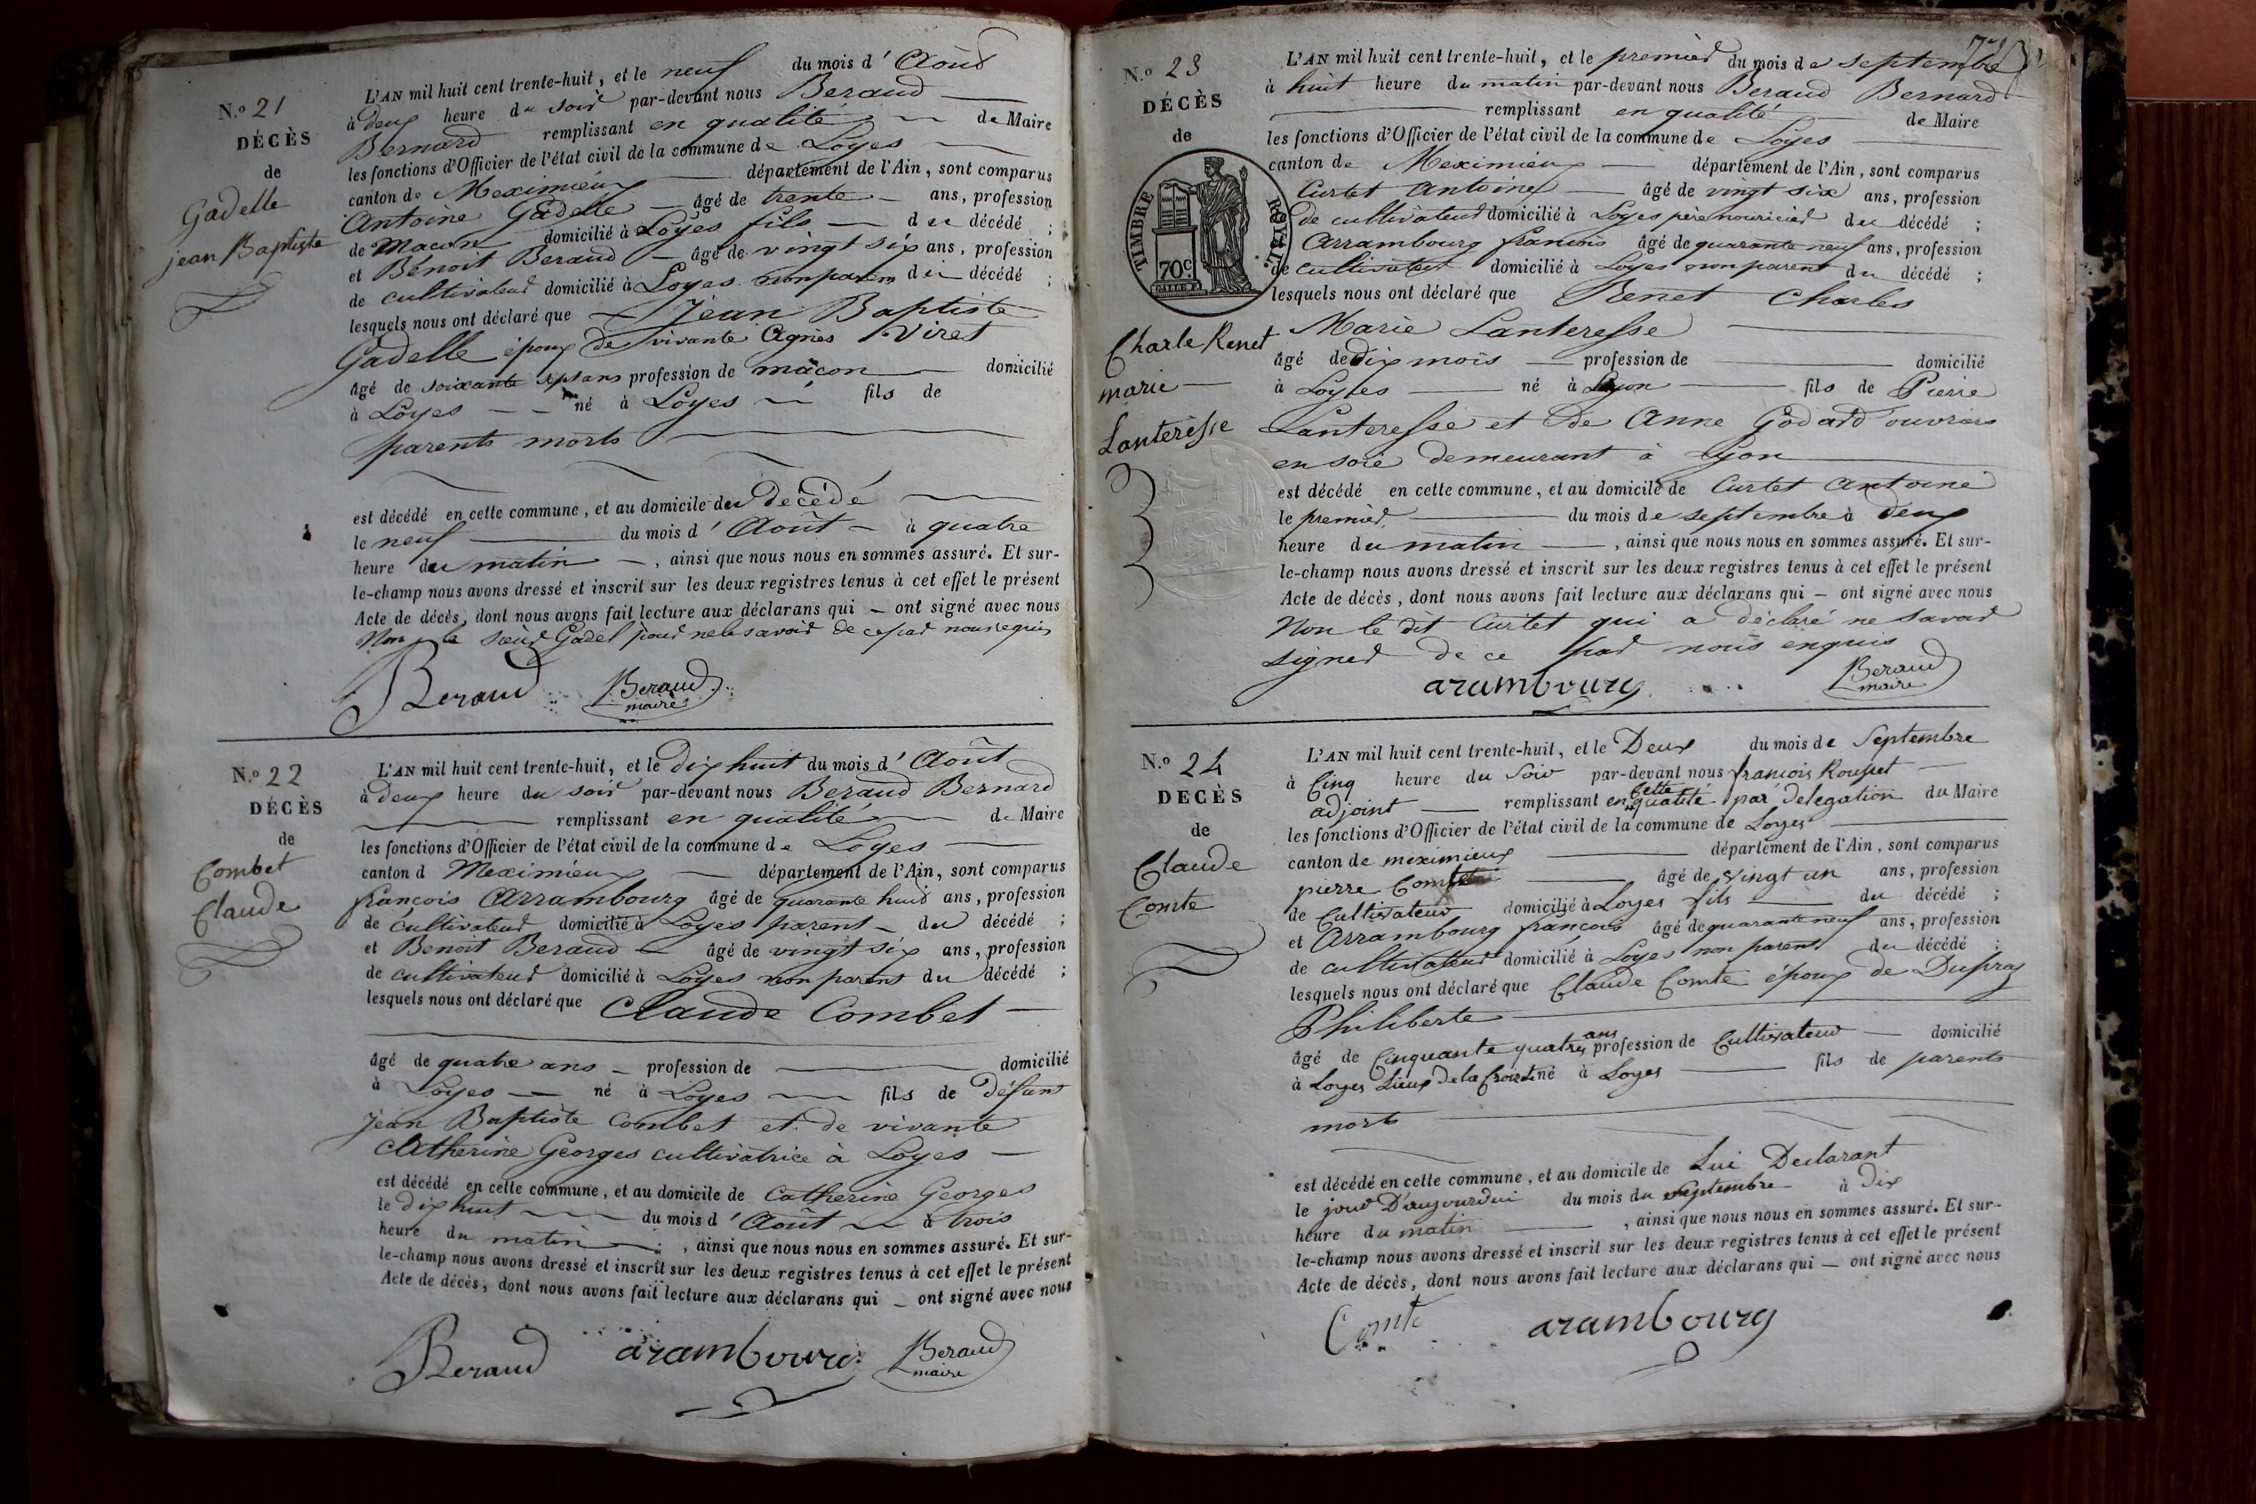 N.º 21
DÉCÈS
de
Gadelle
jean Baptiste
L'AN mil huit cent trente-huit, et le neuf du mois d' Août
à deux heure du soir par-devant nous Beraud
Bernard remplissant en qualité de Maire
les fonctions d'Officier de l'état civil de la commune de Loyes
canton de Meximieux département de l'Ain, sont comparus
Antoine Gadelle âgé de trente ans, profession
de Macon domicilié à Loyes fils du décédé ;
et Bénoit Beraud âgé de vingt six ans, profession
de cultivateur domicilié à Loyes non parent du décédé ;
lesquels nous ont déclaré que Jean Baptiste
Gadelle époux de vivante Agnès Viret
âgé de soixante sept ans profession de macon domicilié
à Loyes né à Loyes fils de
parents morts
est décédé en cette commune, et au domicile du décédé
le neuf du mois d' Août à quatre
heure du matin , ainsi que nous nous en sommes assuré. Et sur-
le-champ nous avons dressé et inscrit sur les deux registres tenus à cet effet le présent
Acte de décès, dont nous avons fait lecture aux déclarans qui — ont signé avec nous
Non le sieur Gadel pour ne le savoir de ce par nous requis
Beraud Beraud
maire
N.º 22
DÉCÈS
de
Combet
Claude
L'AN mil huit cent trente-huit, et le dix huit du mois d' Août
à deux heure du soir par-devant nous Beraud Bernard
remplissant en qualité de Maire
les fonctions d'Officier de l'état civil de la commune de Loyes
canton d Meximieux département de l'Ain, sont comparus
françois Arrambourg âgé de quarante huit ans, profession
de cultivateur domicilié à Loyes parent du décédé ;
et Benoit Beraud âgé de vingt six ans, profession
de cultivateur domicilié à Loyes non parent du décédé ;
lesquels nous ont déclaré que Claude Combet
âgé de quatre ans profession de domicilié
à Loyes né à Loyes fils de défunt
jean Baptiste Combet et de vivante
Catherine Georges cultivatrice à Loyes
est décédé en cette commune, et au domicile de Catherine Georges
le dix huit du mois d' Août à trois
heure du matin , ainsi que nous nous en sommes assuré. Et sur-
le-champ nous avons dressé et inscrit sur les deux registres tenus à cet effet le présent
Acte de décès, dont nous avons fait lecture aux déclarans qui — ont signé avec nous
Beraud arambourg Beraud
maire
N.º 23
DÉCÈS
de
TIMBRE ROYAL
70 c
Charle Renet
marie
Lanteresse
L'AN mil huit cent trente-huit, et le premier du mois de septembre
à huit heure du matin par-devant nous Beraud Bernard
remplissant en qualité de Maire
les fonctions d'Officier de l'état civil de la commune de Loyes
canton de Meximieux département de l'Ain, sont comparus
Curtet Antoine âgé de vingt six ans, profession
de cultivateur domicilié à Loyes père nouricier du décédé ;
Arrambourg francois âgé de quarante neuf ans, profession
de cultivateur domicilié à Loyes non parent du décédé ;
lesquels nous ont déclaré que Renet Charles
Marie Lanteresse
âgé de dix mois profession de domicilié
à Loyes né à Lyon fils de Pierre
Lanteresse et de Anne Godard ouvriers
en soie demeurant à Lyon
est décédé en cette commune, et au domicile de Curtet Antoine
le premier du mois de septembre à deux
heure du matin , ainsi que nous nous en sommes assuré. Et sur-
le-champ nous avons dressé et inscrit sur les deux registres tenus à cet effet le présent
Acte de décès, dont nous avons fait lecture aux déclarans qui — ont signé avec nous
Non le dit Curtet qui a déclaré ne savoir
signer de ce par nous enquis
arambourg Beraud
maire
N.º 24
DECÈS
de
Claude
Comte
L'AN mil huit cent trente-huit, et le Deux du mois de Septembre
à Cinq heure du Soir par-devant nous francois Rousset
adjoint remplissant en cette qualité par delegation du Maire
les fonctions d'Officier de l'état civil de la commune de Loyes
canton de meximieux département de l'Ain, sont comparus
pierre Comte âgé de vingt un ans, profession
de Cultivateur domicilié à Loyes fils du décédé ;
et Arrambourg francois âgé de quarante neuf ans, profession
de cultivateur domicilié à Loyes non parent du décédé ;
lesquels nous ont déclaré que Claude Comte époux de Dupras
Philiberte
âgé de Cinquante quatres ans profession de Cultivateur domicilié
à Loyes Lieux de la né à Loyes fils de parents
morts
est décédé en cette commune, et au domicile de Lui Declarant
le jour D'aujourdui du mois du septembre à dix
heure du matin , ainsi que nous nous en sommes assuré. Et sur-
le-champ nous avons dressé et inscrit sur les deux registres tenus à cet effet le présent
Acte de décès, dont nous avons fait lecture aux déclarans qui — ont signé avec nous
Comte arambourg